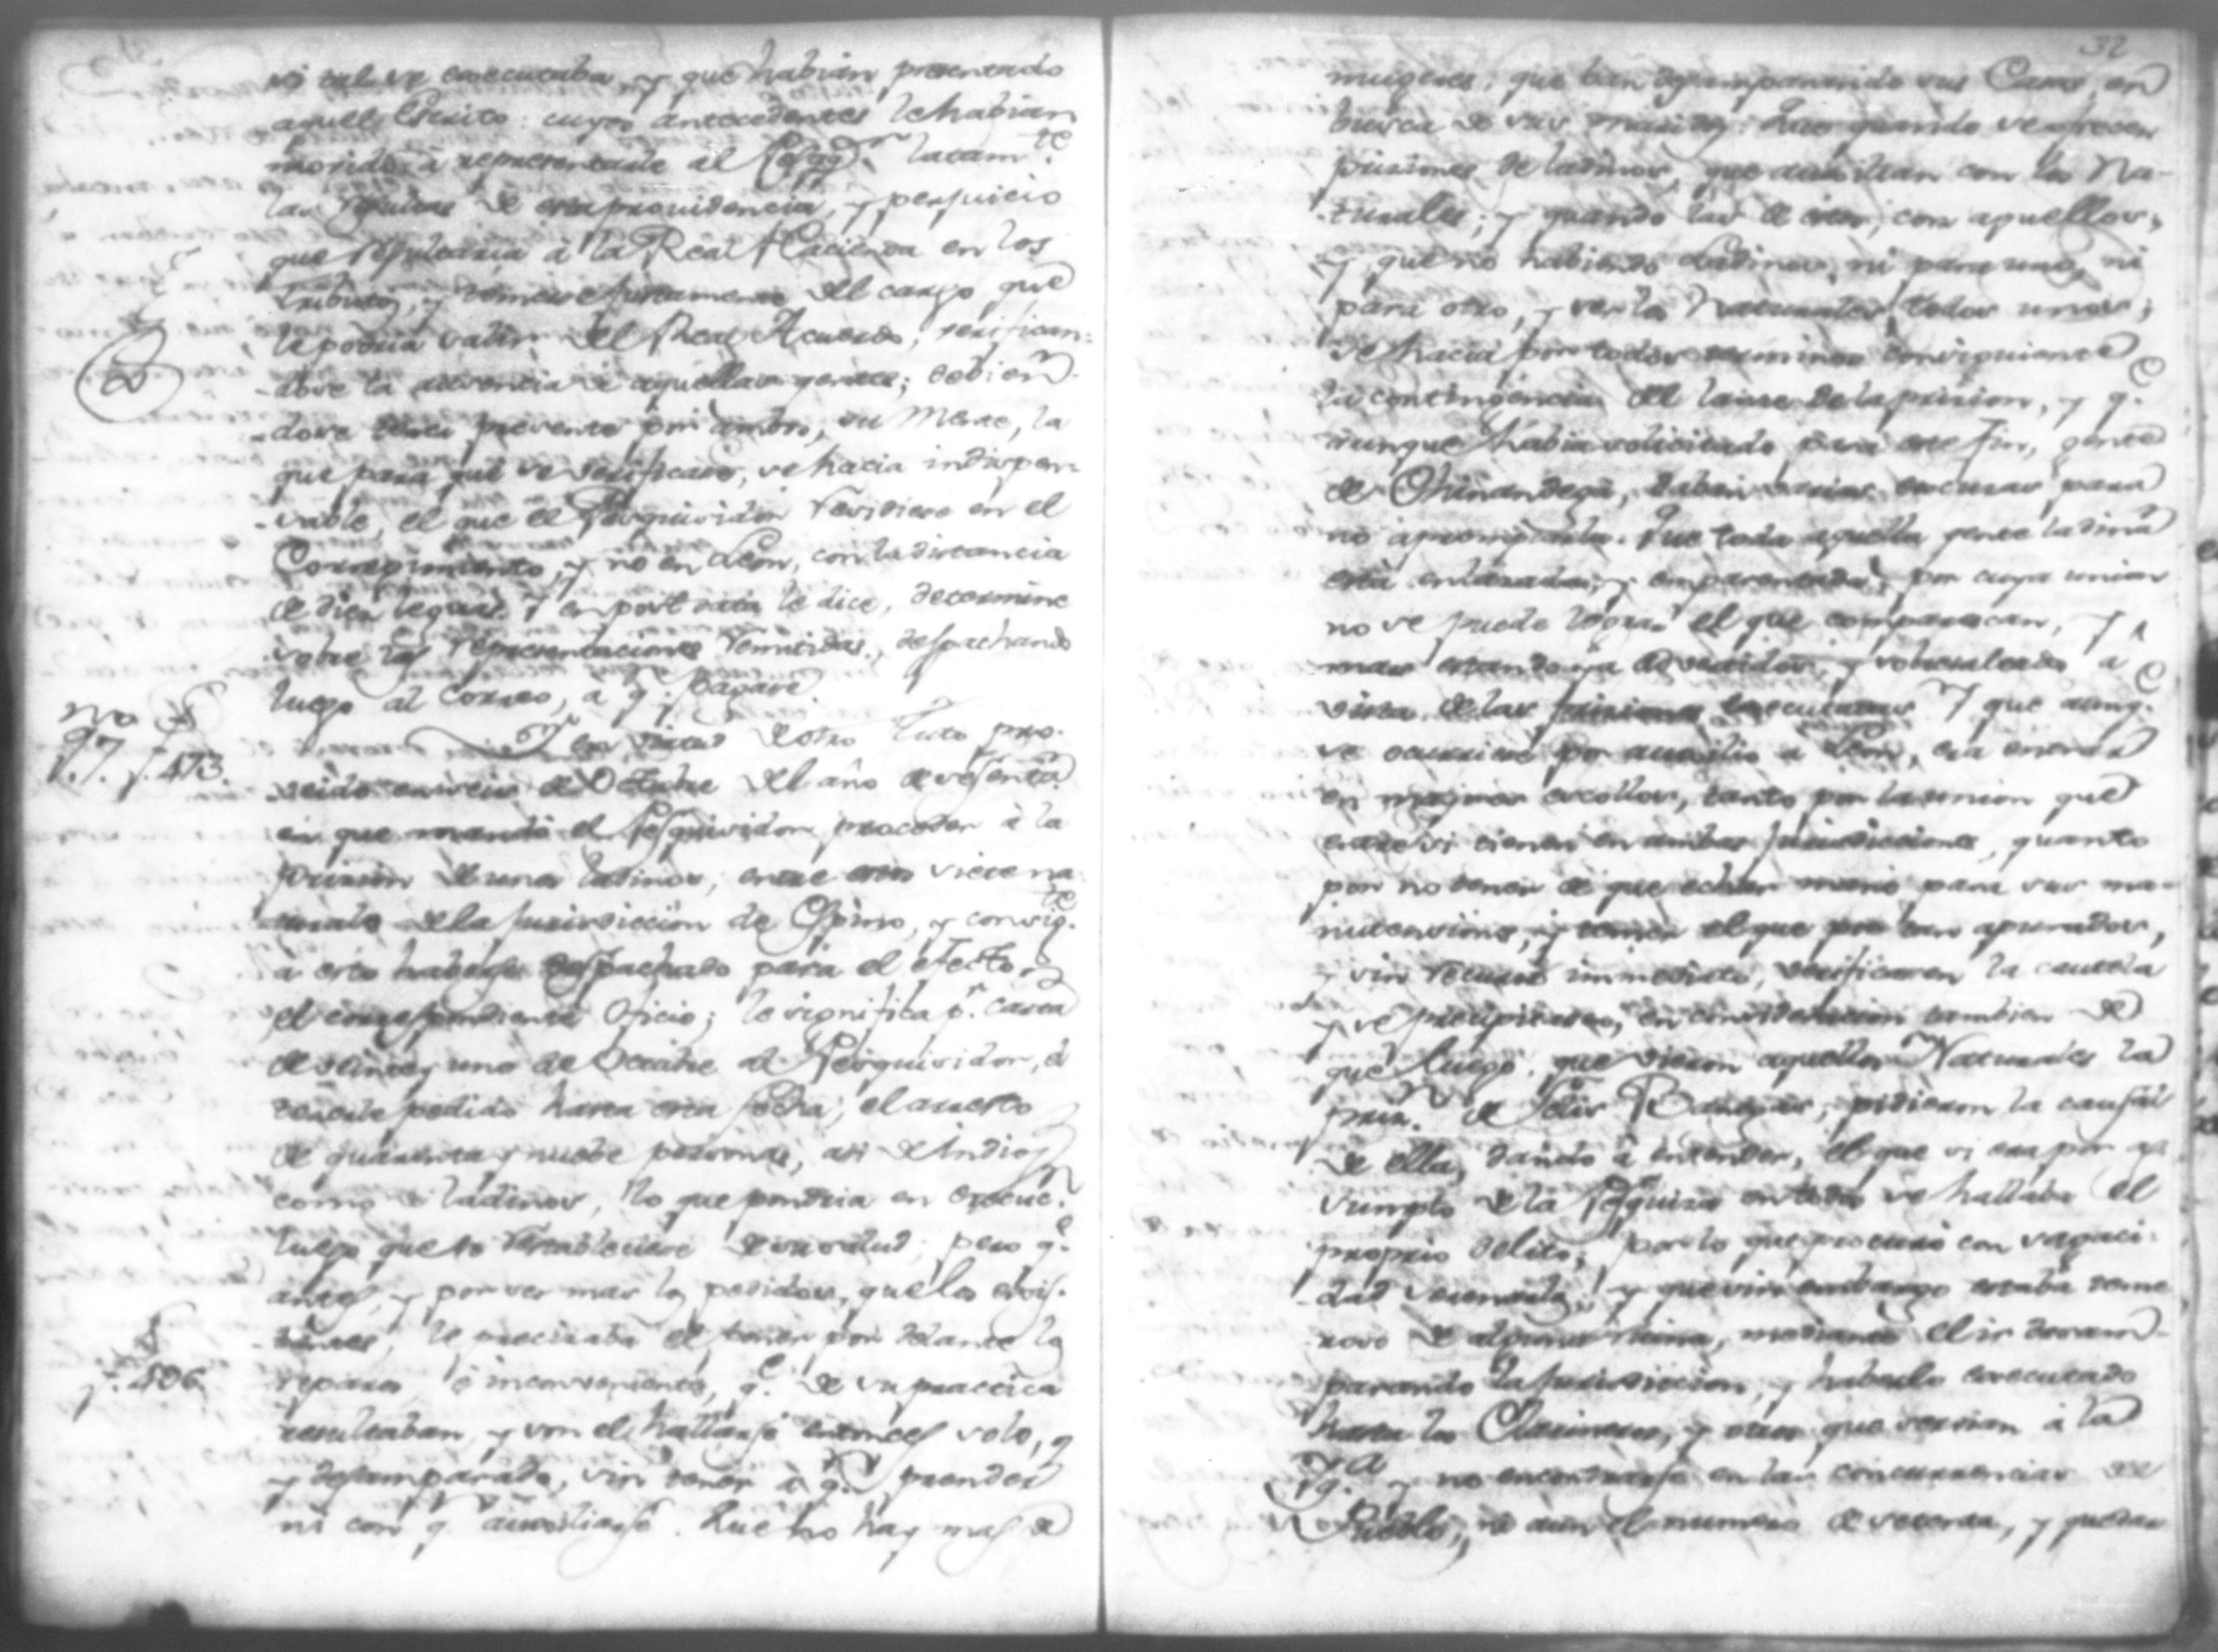 si tal se executaba, y que habian presentado
aquel Escrito: cuyos antecedentes le habian
movido à representarle al latam.te
las resultas de esta providencia, y perjuicio
que resultaria à la Real Hacienda en los
tributos, y temerse justamente del cargo que
le podria valer del Real Acuerdo, verifican-
-dose la ausencia de aquellas gentes; debien-
-dose tener presente por ambos, su Mente, la
que para que se verificase, se hacia indispen-
-sable, el que el Pesquisidor residiese en el
Corregimiento, y no en Leon, con la distancia
de diez leguas. Y en post data le dice, determine
sobre las representaciones remitidas, despachando
luego al correo, à q.e pagare.
no
97. f. 473.
Y en virtud de otro Auto pro-
-veido en seis de Octubre del año de sesenta
en que mandó el Pesquisidor proceder à la
prision de unos ladinos, entre ellos siete na-
-turales de la jurisdiccion de y consig.te
à esto haberse despachado para el efecto
el correspondiente Oficio; le significa p.r carta
de veinte y uno de Octubre al Pesquisidor, à
tenerle pedido hasta esta fecha, el arresto
de quarenta y nuebe personas, asi de Indios
como de ladinos, lo que pondria en execuc.n
luego que lo restableciese de su salud; pero q.e
antes, y por ser mas los pedidos, que los exis-
-tentes, le precisaba el poner por delante los
f. 406
reparos, è inconvenientes, q.e de su practica
resultaban, y son el hallarse entonces solo,
y desamparado, sin tener à q.n prender
ni con q.n auxiliarse. Que no hay mas de
32
mugeres, que ban desamparando sus Casas, en
busca de sus maridos: Que quando se ofrecen
prisiones de ladinos, que auxilian con los Na-
-turales; y quando las de estos, con aquellos,
y que no habiendo Ladinos, ni para uno, ni
para otro, y ser los Naturales todos unos;
se hacia por todos terminos consiguiente
la contingencia del lanze de la prision, y q.e
aunque habia solicitado para este fin, gente
de Chinandega, daban varias excusas para
no aprontarla. Que toda aquella gente ladina
està enlazada, y emparentada, por cuya union
no se puede lograr el que comparescan, y
mas estando ya advertidos, y sobresaltados à
vista de las prisiones executadas. Y que aunq.e
se ocurriese por auxilio à Leon, era entrar
en mayores escollos, tanto por la union que
entre si tienen en ambas jurisdicciones, quanto
por no tener de que echar mano para sus ma-
-nutenciones, y temer el que por tan apurados,
y sin recurso inmediato, verificasen la cautela
y se precipitasen, en consideracion tambien de
que luego, que vieron aquellos Naturales la
pris.n de Felis pidieron la causal
de ella, dando à entender, el que si era por
sumpto de la Pesquisa en todos se hallaba el
proprio delito; por lo que procuró con sagaci-
-dad serenarlos, y que sin embargo estaba teme-
-roso de alguna ruina, mediante el ir desam-
-parando la jurisdiccion, y haberlo executado
hasta los Clarineros, y otros que servian à la
Yg.a y no encontrarse en las concurrencias del
Pueblo, ni aun el numero de setenta, y quedar